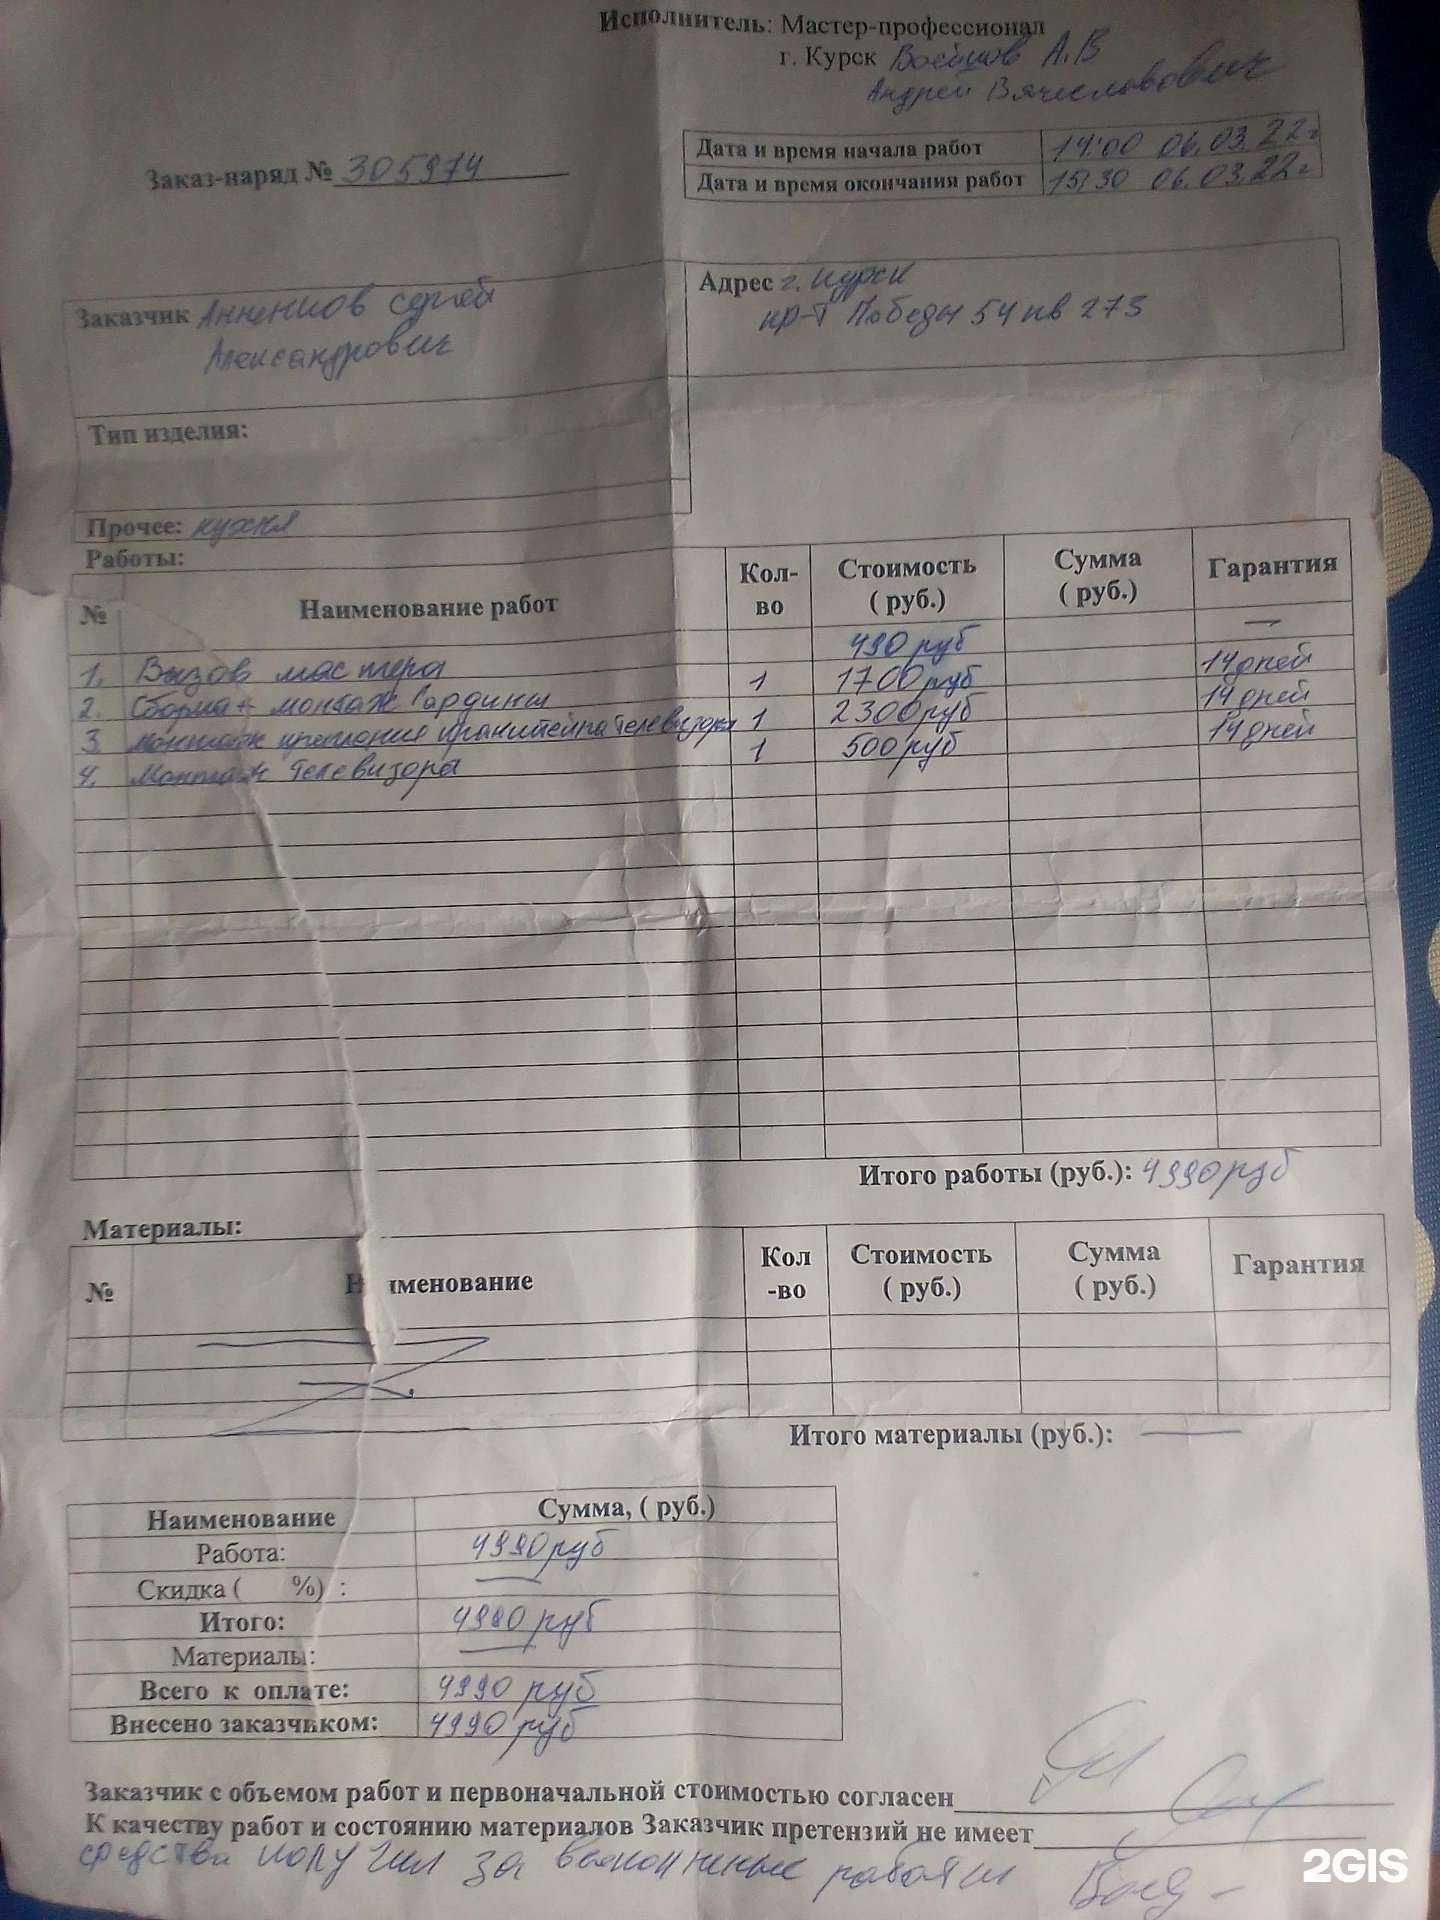 Исполнитель: Мастер-профессионал
г. Курск Воейцов А.В
Андрей Вячеславович
Заказ-наряд № 305974
Дата и время начала работ 14:00 06.03.22г
Дата и время окончания работ 15:30 06.03.22г
Заказчик Анненков Сергей
Александрович
Адрес г. Курск
пр-т Победы 54 кв 273
Тип изделия:
Прочее: кухня
Работы:
№ Наименование работ Кол-во Стоимость ( руб.) Сумма ( руб.) Гарантия
1. Вызов мастера 490 руб —
2. Сборка + монтаж Гардины 1 1700 руб 14 дней
3. монтаж крепления кранштейна телевизора 1 2300 руб 14 дней
4. Монтаж телевизора 1 500 руб 14 дней
Итого работы (руб.): 4990 руб
Материалы:
№ Наименование Кол-во Стоимость ( руб.) Сумма ( руб.) Гарантия
Итого материалы (руб.): —
Наименование Сумма, ( руб.)
Работа: 4990 руб
Скидка ( %) : —
Итого: 4990 руб
Материалы: —
Всего к оплате: 4990 руб
Внесено заказчиком: 4990 руб
Заказчик с объемом работ и первоначальной стоимостью согласен
К качеству работ и состоянию материалов Заказчик претензий не имеет
средства получил за выполненные работы
2GIS